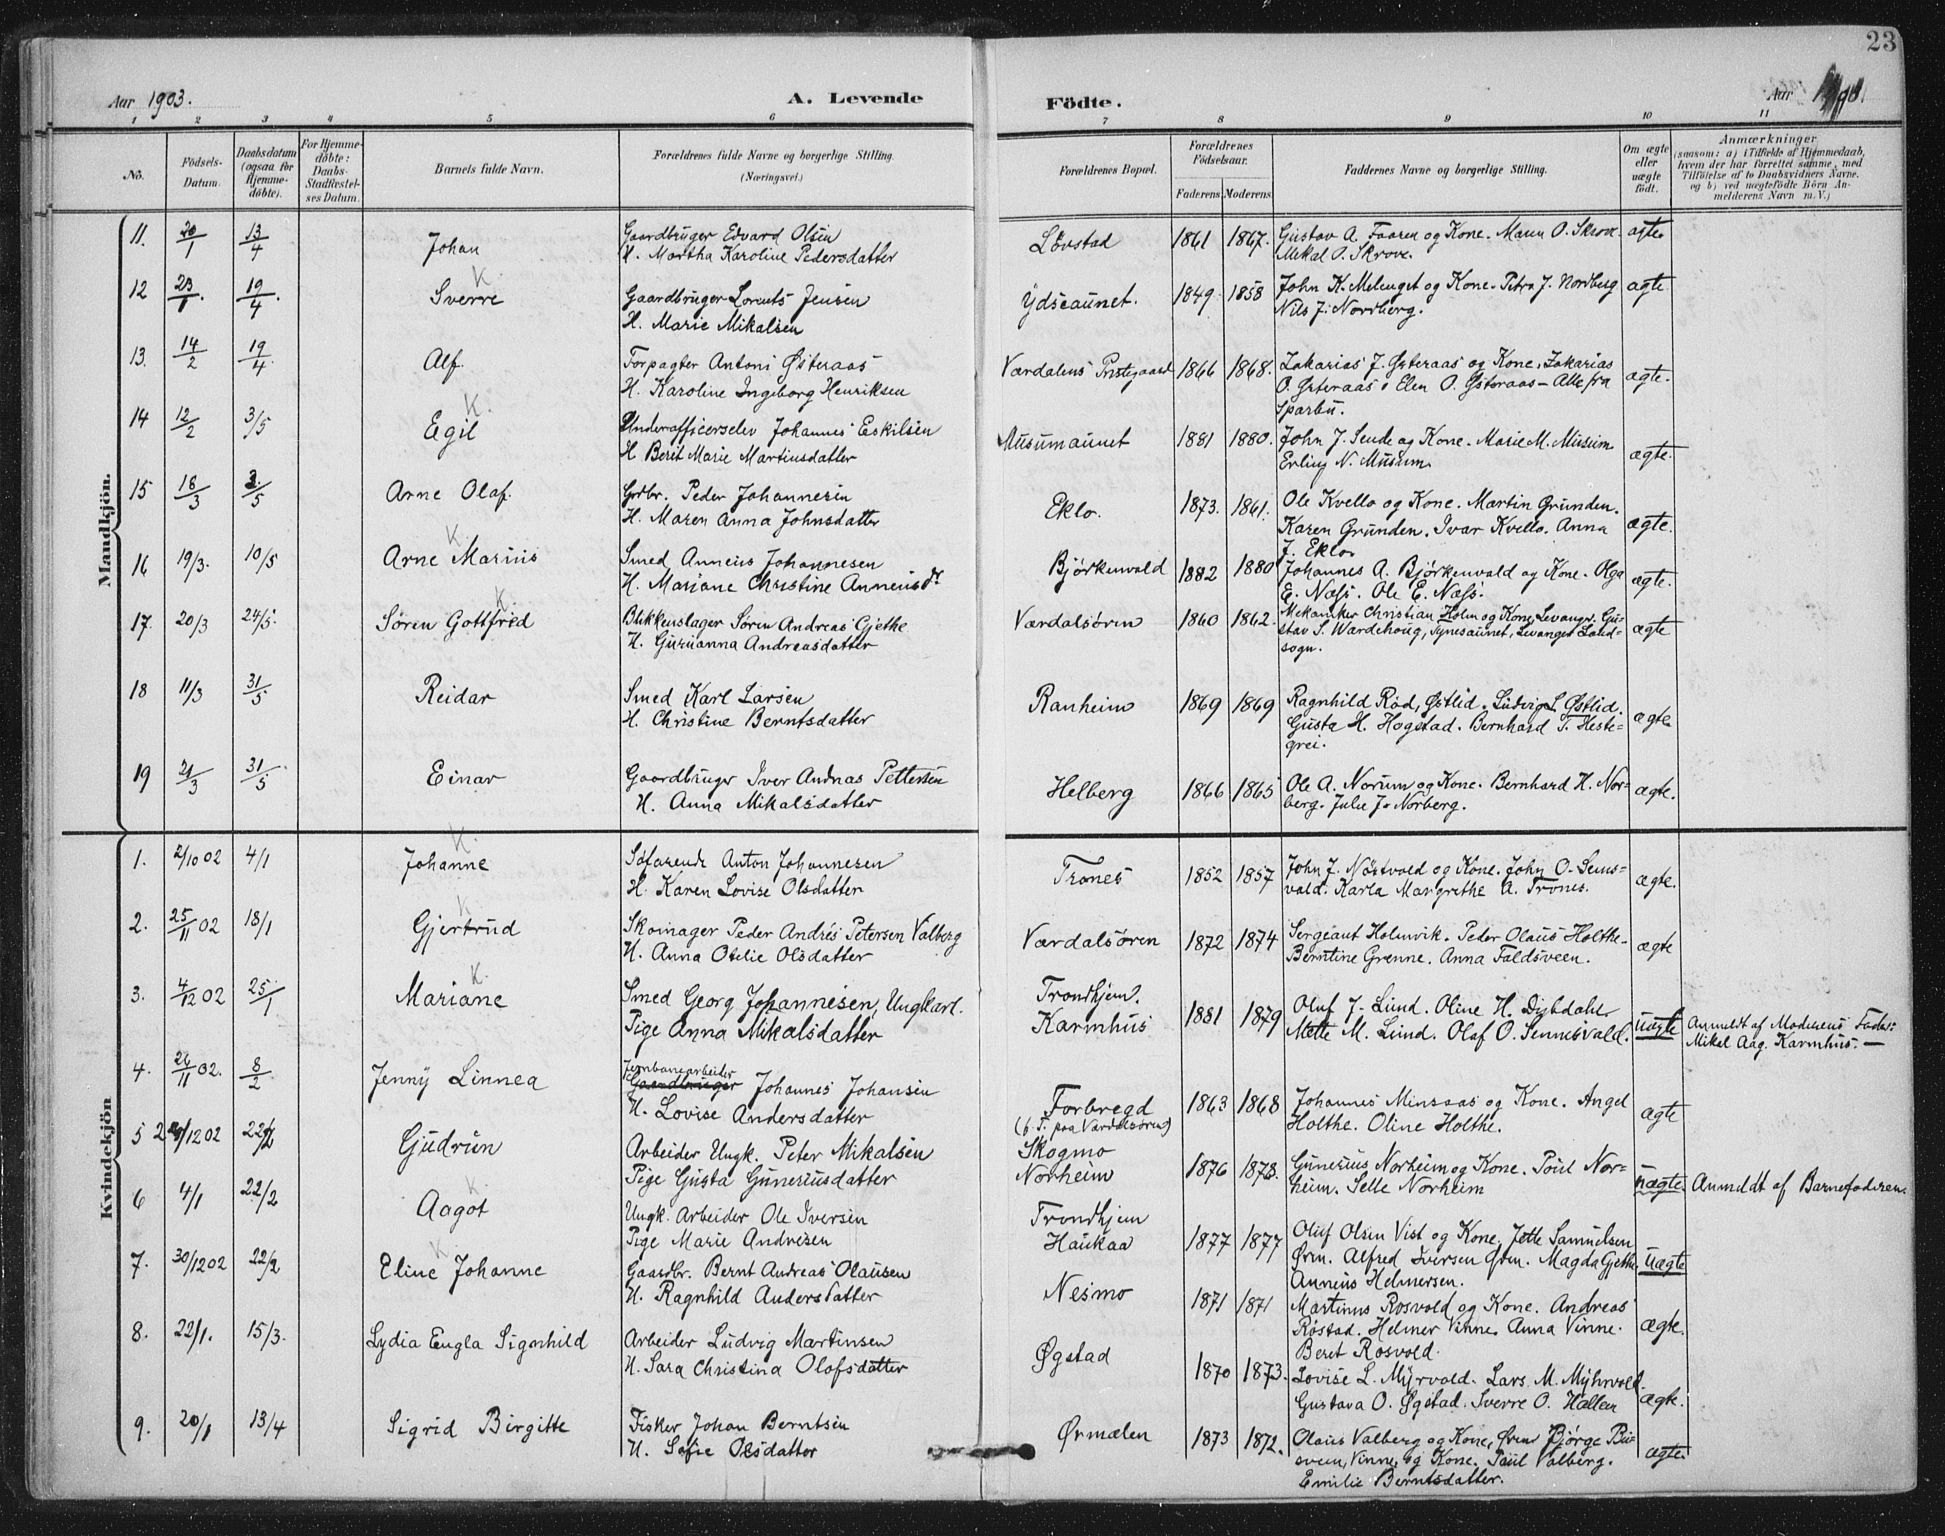 23
Aar 1903.
A. Levende
Födte.
Aar
1 2 3 4 5 6 7 8 9 10 11
No.
Födsels-Datum.
Daabsdatum (ogsaa for Hjemme-döbte).
For Hjemme-döbte: Daabs-Stadfæstel-ses Datum.
Barnets fulde Navn.
Forældrenes fulde Navne og borgerlige Stilling. (Næringsvei.)
Forældrenes Bopæl.
Forældrenes Födselsaar.
Faderens Moderens
Faddernes Navne og borgerlige Stilling.
Om ægte eller uægte födt.
Anmærkninger
(saasom: a) i Tilfælde af Hjemmedaab, hvem der har forrettet samme, med Tilföielse af to Daabsvidners Navne. og b) ved uægtefödte Börn An-melderens Navn m.V.)
Mandkjön.
11. 20/1 13/4 Johan Gaardbruger Edvard Olsen Lövstad 1861 1867. Gustav A. Faaren og Kone. Maren O. Skrove. ægte
H. Martha Karoline Pedersdatter Mikal O. Skrove.
12 23/1. 19/4. Sverre K Gaardbruger Lorents Jensen Ydseaunet. 1849 1858 John K. Melenget og Kone. Petra J. Nordberg ægte
H. Marie Mikalsen Nils J. Nordberg.
13. 14/2 19/4 Alf. Forpagter Antoni Østeraas Værdalens Prestegaard 1866 1868. Zakarias J. Østeraas og Kone, Zakarias ægte.
H. Karoline Ingeborg Henriksen O. Østeraas, Elen O. Østeraas – Alle fra
Sparbu.
14 12/2 3/5 Egil K. Underofficerselev Johannes Eskilsen Musumaunet 1881 1880. John J. Sende og Kone. Marie M. Musum ægte.
H Berit Marie Martinusdatter Erling N. Musum
15 18/3 3/5 Arne Olaf. Grdbr. Peder Johannesen Eklo. 1873. 1861. Ole Kvello og Kone. Martin Grunden. ægte.
H. Maren Anna Johnsdatter Karen Grunden. Ivar Kvello. Anna
J. Eklo.
16 19/3. 10/5 Arne Marius K Smed Anneus Johannesen Björkenvald 1882 1880 Johannes A. Björkenvald og Kone. Olga ægte.
H. Mariane Christine Anneusdr E. Næss. Ole E. Næss.
17. 20/3 24/5. Sören Gottfred K Blikkenslager Sören Andreas Gjethe Værdalsören 1860 1862. Mekaniker Christian Holm og Kone, Levanger. Gu- ægte
H. Gurianna Andreasdatter stav S. Wardehoug, Tynesaunet, Levanger Land-
sogn.
18 11/3 31/5 Reidar Smed Karl Larsen Ranheim 1869 1869 Ragnhild Röd, Østlid. Ludvig L Østlid. ægte
H. Christine Berntsdatter Gusta H. Hogstad. Bernhard T. Heste-
grei.
19 21/3 31/5 Einar Gaardbruger Iver Andreas Pettersen Helberg 1866 1865 Ole A. Norum og Kone. Bernhard H. Nor- ægte.
H. Anna Mikalsdatter berg. Julie J. Norberg.
Kvindekjön
1. 2/10 02 4/1 Johanne K. Söfarende Anton Johannesen Trones 1852 1857 John J. Nöstvold og Kone. John O. Sems- ægte.
H. Karen Lovise Olsdatter vald. Karla Margrethe A. Trones.
2. 25/11 02 18/1 Gjertrud K Skomager Peder Andrés Petersen Valberg Værdalsören 1872 1874 Sergeant Holmvik. Peder Olaus Holthe. ægte
H. Anna Otilie Olsdatter Berntine Grenne. Anna Faldsveen.
3. 4/12 02 25/1 Mariane K. Smed Georg Johannesen, Ungkarl. Trondhjem. 1881 1879 Oluf J. Lund. Oline H. Dybdahl uægte Anmeldt af Moderens Fader:
Pige Anna Mikalsdatter Karmhus Mette M. Lund. Olaf O. Sennesvald. Mikel Aag. Karmhus. —
4. 26/11 02. 8/2 Jenny Linnea Jernbanearbeider Gaardbruger Johannes Johansen Forbregd 1863 1868 Johannes Minsaas og Kone. Angel ægte
H. Lovise Andersdatter (b. T. paa Værdalsören) Holthe. Oline Holthe.
5 29/12 02 22/2 Gudrun Arbeider Ungk. Peter Mikalsen Skogmo 1876 1878. Gunerius Norheim og Kone. Paul Nor- uægte. Anmeldt af Barnefaderen.
Pige Gusta Guneriusdatter Norheim heim. Selle Norheim
6 4/1 22/2 Aagot K Ungk. Arbeider Ole Iversen Trondhjem 1877 1877 Oluf Olsen Vist og Kone, Jette Samuelsen uægte
Pige Marie Andresen Haukaa Ørm. Alfred Iversen Ørm. Magda Gjethe.
Anneus Helmersen.
7. 30/12 02 22/2 Eline Johanne K Gaardbr. Bernt Andreas Olausen Nesmo 1871 1871 Martinus Rosvold og Kone. Andreas ægte.
H. Ragnhild Andersdatter Röstad. Helmer Vinne. Anna Vinne.
Beret Rosvold.
8. 22/1. 15/3. Lydia Engla Signhild Arbeider Ludvig Martinsen Øgstad 1870 1873. Lovise L. Myrvold. Lars M. Myhrvold. ægte.
H. Sara Christina Olofsdatter Gustava O. Øgstad. Sverre O. Hallem
9. 20/1 13/4 Sigrid Birgitte Fisker Johan Berntsen Ørmælen 1873 1872. Olaus Valberg og Kone, Ørm Bjørge Bu- ægte.
H. Sofie Olsdatter sveen, Vinne, og Kone. Paul Valberg.
Emilie Berntsdatter.